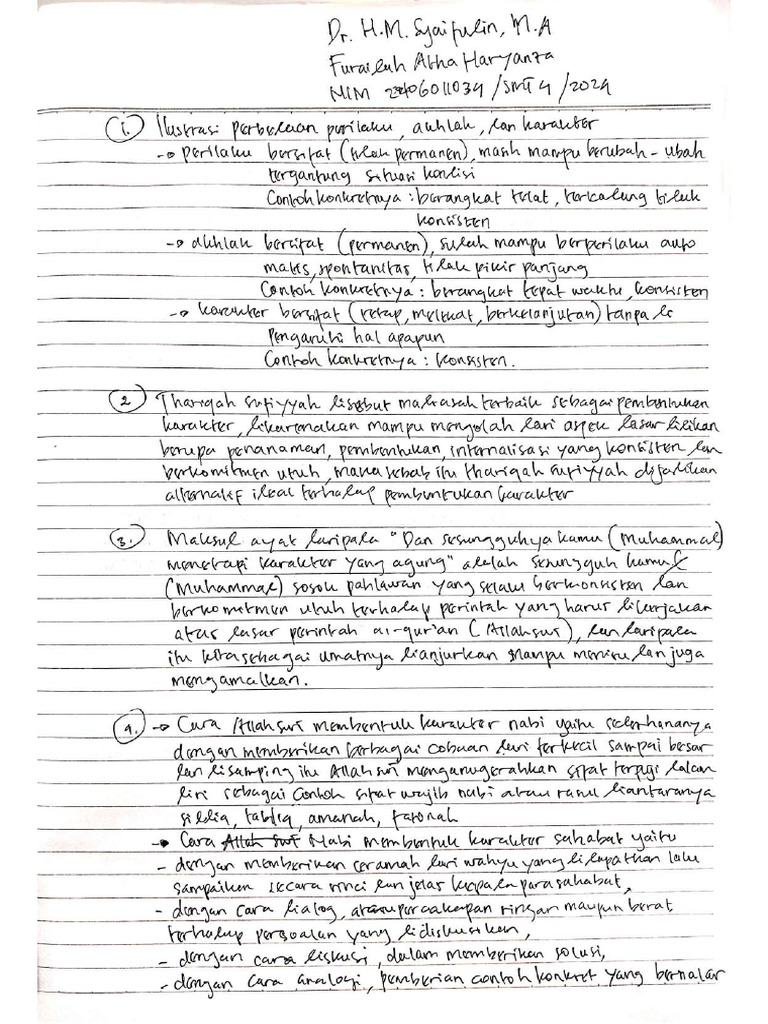 Dr. H.M. Syaifulin, M.A
Furailah Atha Haryanza
NIM 2406011034 / SMT 4 / 2024
1. Ilustrasi perbedaan perilaku, akhlak, dan karakter
→ perilaku bersifat (tidak permanen), masih mampu berubah - ubah
tergantung situasi kondisi
Contoh konkretnya : berangkat telat, terkadang tidak
konsisten
→ akhlak bersifat (permanen), sudah mampu berperilaku auto
matis, spontanitas, tidak pikir panjang
Contoh konkretnya : berangkat tepat waktu, konsisten
→ karakter bersifat (tetap, melekat, berkelanjutan) tanpa di
pengaruhi hal apapun
Contoh konkretnya : konsisten.
2 Thariqah sufiyyah disebut madrasah terbaik sebagai pembentukan
karakter, dikarenakan mampu mengolah dari aspek dasar didikan
berupa penanaman, pembentukan, internalisasi yang konsisten dan
berkomitmen utuh, maka sebab itu thariqah sufiyyah dijadikan
alternatif ideal terhadap pembentukan karakter
3. Maksud ayat daripada "Dan sesungguhya kamu (Muhammad)
menetapi karakter yang agung" adalah sesungguh kamu
(Muhammad) sosok pahlawan yang selalu berkonsisten dan
berkomitmen utuh terhadap perintah yang harus dikerjakan
atas dasar perintah al-qur'an (Allah swt), dan daripada
itu kita sebagai umatnya dianjurkan mampu meniru dan juga
mengamalkan.
4. → Cara Allah swt membentuk karakter nabi yaitu sederhananya
dengan memberikan berbagai cobaan dari terkecil sampai besar
dan disamping itu Allah swt menganugerahkan sifat terpuji dalam
diri sebagai contoh sifat wajib nabi atau rasul diantaranya
siddiq, tabliq, amanah, fatonah
→ Cara Allah swt Nabi membentuk karakter sahabat yaitu
- dengan memberikan ceramah dari wahyu yang didapatkan lalu
sampaikan secara rinci dan jelas kepada para sahabat,
- dengan cara dialog, atau percakapan ringan maupun berat
terhadap persoalan yang didiskusikan,
- dengan cara diskusi, dalam memberikan solusi,
- dengan cara analogi, pemberian contoh konkret yang bernalar